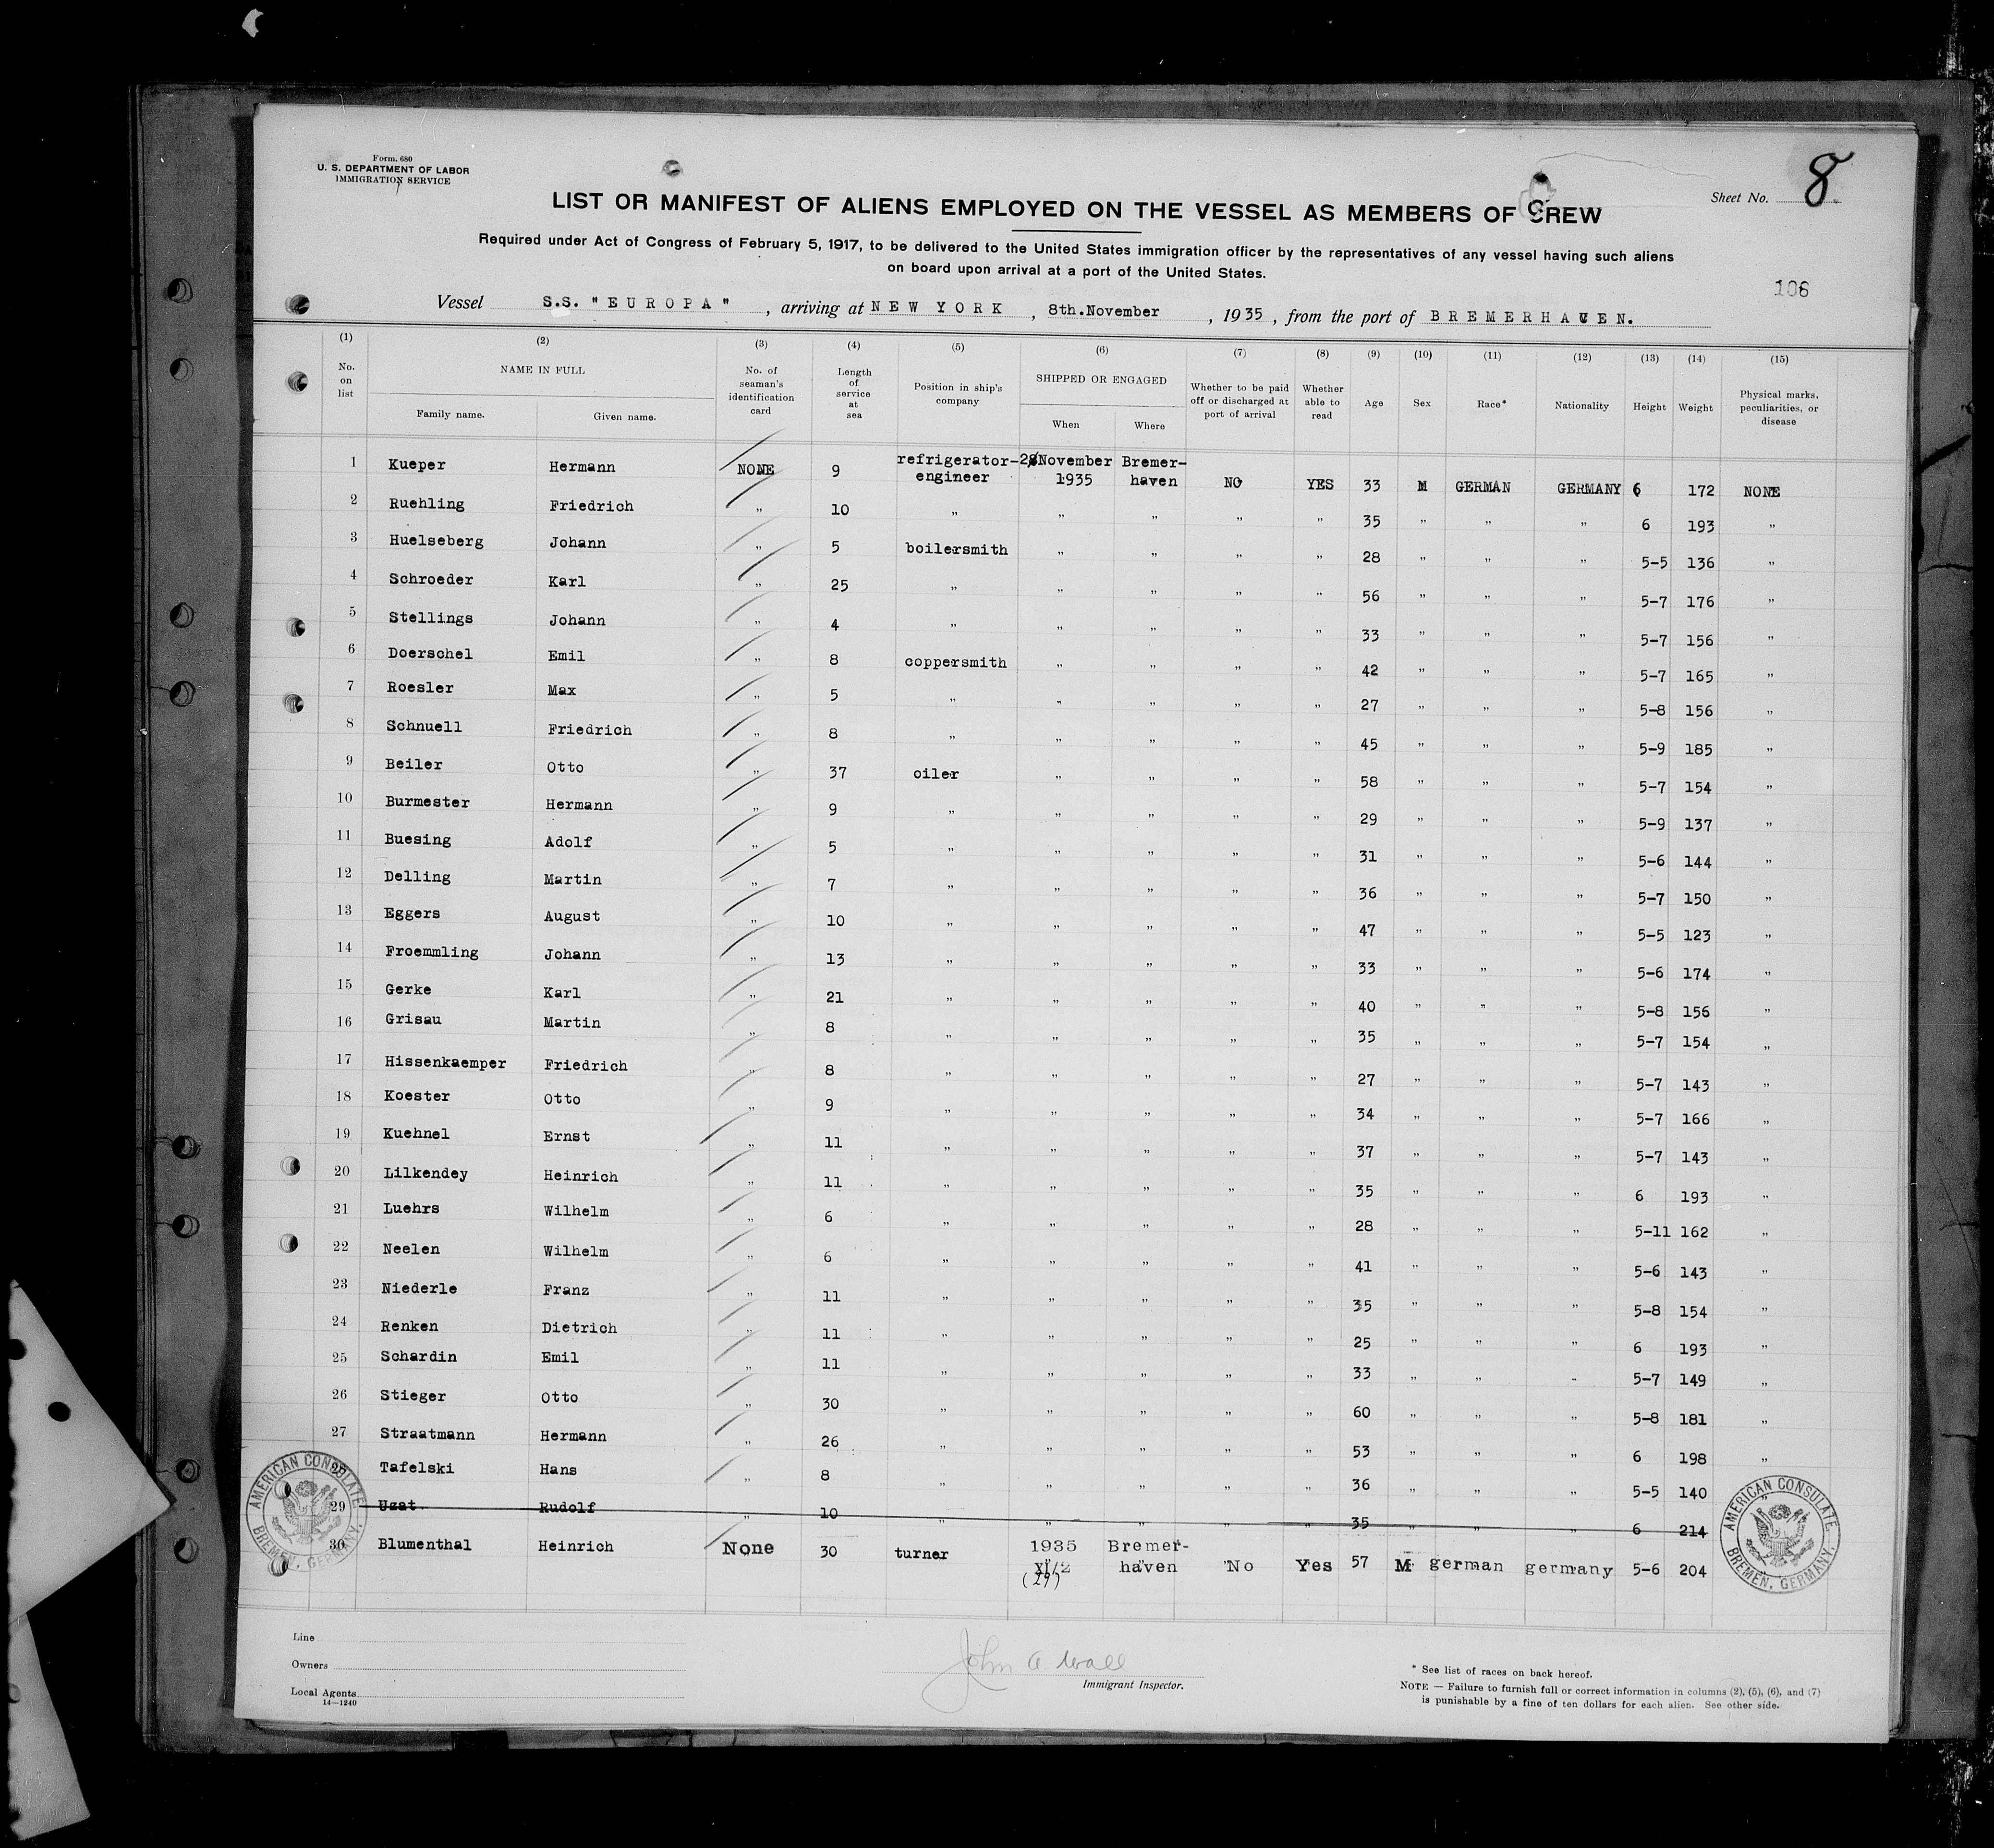 Form. 680
U. S. DEPARTMENT OF LABOR
IMMIGRATION SERVICE
Sheet No. 8
LIST OR MANIFEST OF ALIENS EMPLOYED ON THE VESSEL AS MEMBERS OF CREW
Required under Act of Congress of February 5, 1917, to be delivered to the United States immigration officer by the representatives of any vessel having such aliens
on board upon arrival at a port of the United States.
106
Vessel S.S. "EUROPA", arriving at NEW YORK, 8th.November, 1935, from the port of BREMERHAVEN.
(1) (2) (3) (4) (5) (6) (7) (8) (9) (10) (11) (12) (13) (14) (15)
No. on list NAME IN FULL Family name. Given name. No. of seaman's identification card Length of service at sea Position in ship's company SHIPPED OR ENGAGED When Where Whether to be paid off or discharged at port of arrival Whether able to read Age Sex Race* Nationality Height Weight Physical marks, peculiarities, or disease
1 Kueper Hermann NONE 9 refrigerator-engineer 2 November 1935 Bremer-haven NO YES 33 M GERMAN GERMANY 6 172 NONE
2 Ruehling Friedrich " 10 " " " " " 35 " " " 6 193 "
3 Huelseberg Johann " 5 boilersmith " " " " 28 " " " 5-5 136 "
4 Schroeder Karl " 25 " " " " " 56 " " " 5-7 176 "
5 Stellings Johann " 4 " " " " " 33 " " " 5-7 156 "
6 Doerschel Emil " 8 coppersmith " " " " 42 " " " 5-7 165 "
7 Roesler Max " 5 " " " " " 27 " " " 5-8 156 "
8 Schnuell Friedrich " 8 " " " " " 45 " " " 5-9 185 "
9 Beiler Otto " 37 oiler " " " " 58 " " " 5-7 154 "
10 Burmester Hermann " 9 " " " " " 29 " " " 5-9 137 "
11 Buesing Adolf " 5 " " " " " 31 " " " 5-6 144 "
12 Delling Martin " 7 " " " " " 36 " " " 5-7 150 "
13 Eggers August " 10 " " " " " 47 " " " 5-5 123 "
14 Froemmling Johann " 13 " " " " " 33 " " " 5-6 174 "
15 Gerke Karl " 21 " " " " " 40 " " " 5-8 156 "
16 Grisau Martin " 8 " " " " " 35 " " " 5-7 154 "
17 Hissenkaemper Friedrich " 8 " " " " " 27 " " " 5-7 143 "
18 Koester Otto " 9 " " " " " 34 " " " 5-7 166 "
19 Kuehnel Ernst " 11 " " " " " 37 " " " 5-7 143 "
20 Lilkendey Heinrich " 11 " " " " " 35 " " " 6 193 "
21 Luehrs Wilhelm " 6 " " " " " 28 " " " 5-11 162 "
22 Neelen Wilhelm " 6 " " " " " 41 " " " 5-6 143 "
23 Niederle Franz " 11 " " " " " 35 " " " 5-8 154 "
24 Renken Dietrich " 11 " " " " " 25 " " " 6 193 "
25 Schardin Emil " 11 " " " " " 33 " " " 5-7 149 "
26 Stieger Otto " 30 " " " " " 60 " " " 5-8 181 "
27 Straatmann Hermann " 26 " " " " " 53 " " " 6 198 "
28 Tafelski Hans " 8 " " " " " 36 " " " 5-5 140 "
29 Uzat Rudolf " 10 " " " " " 35 " " " 6 214
30 Blumenthal Heinrich None 30 turner 1935 Bremer-haven No Yes 57 M german germany 5-6 204
(29)
AMERICAN CONSULATE, BREMEN, GERMANY.
AMERICAN CONSULATE, BREMEN, GERMANY.
Line
Owners
Local Agents
14—1240
John A Wall
Immigrant Inspector.
* See list of races on back hereof.
NOTE — Failure to furnish full or correct information in columns (2), (5), (6), and (7)
is punishable by a fine of ten dollars for each alien. See other side.